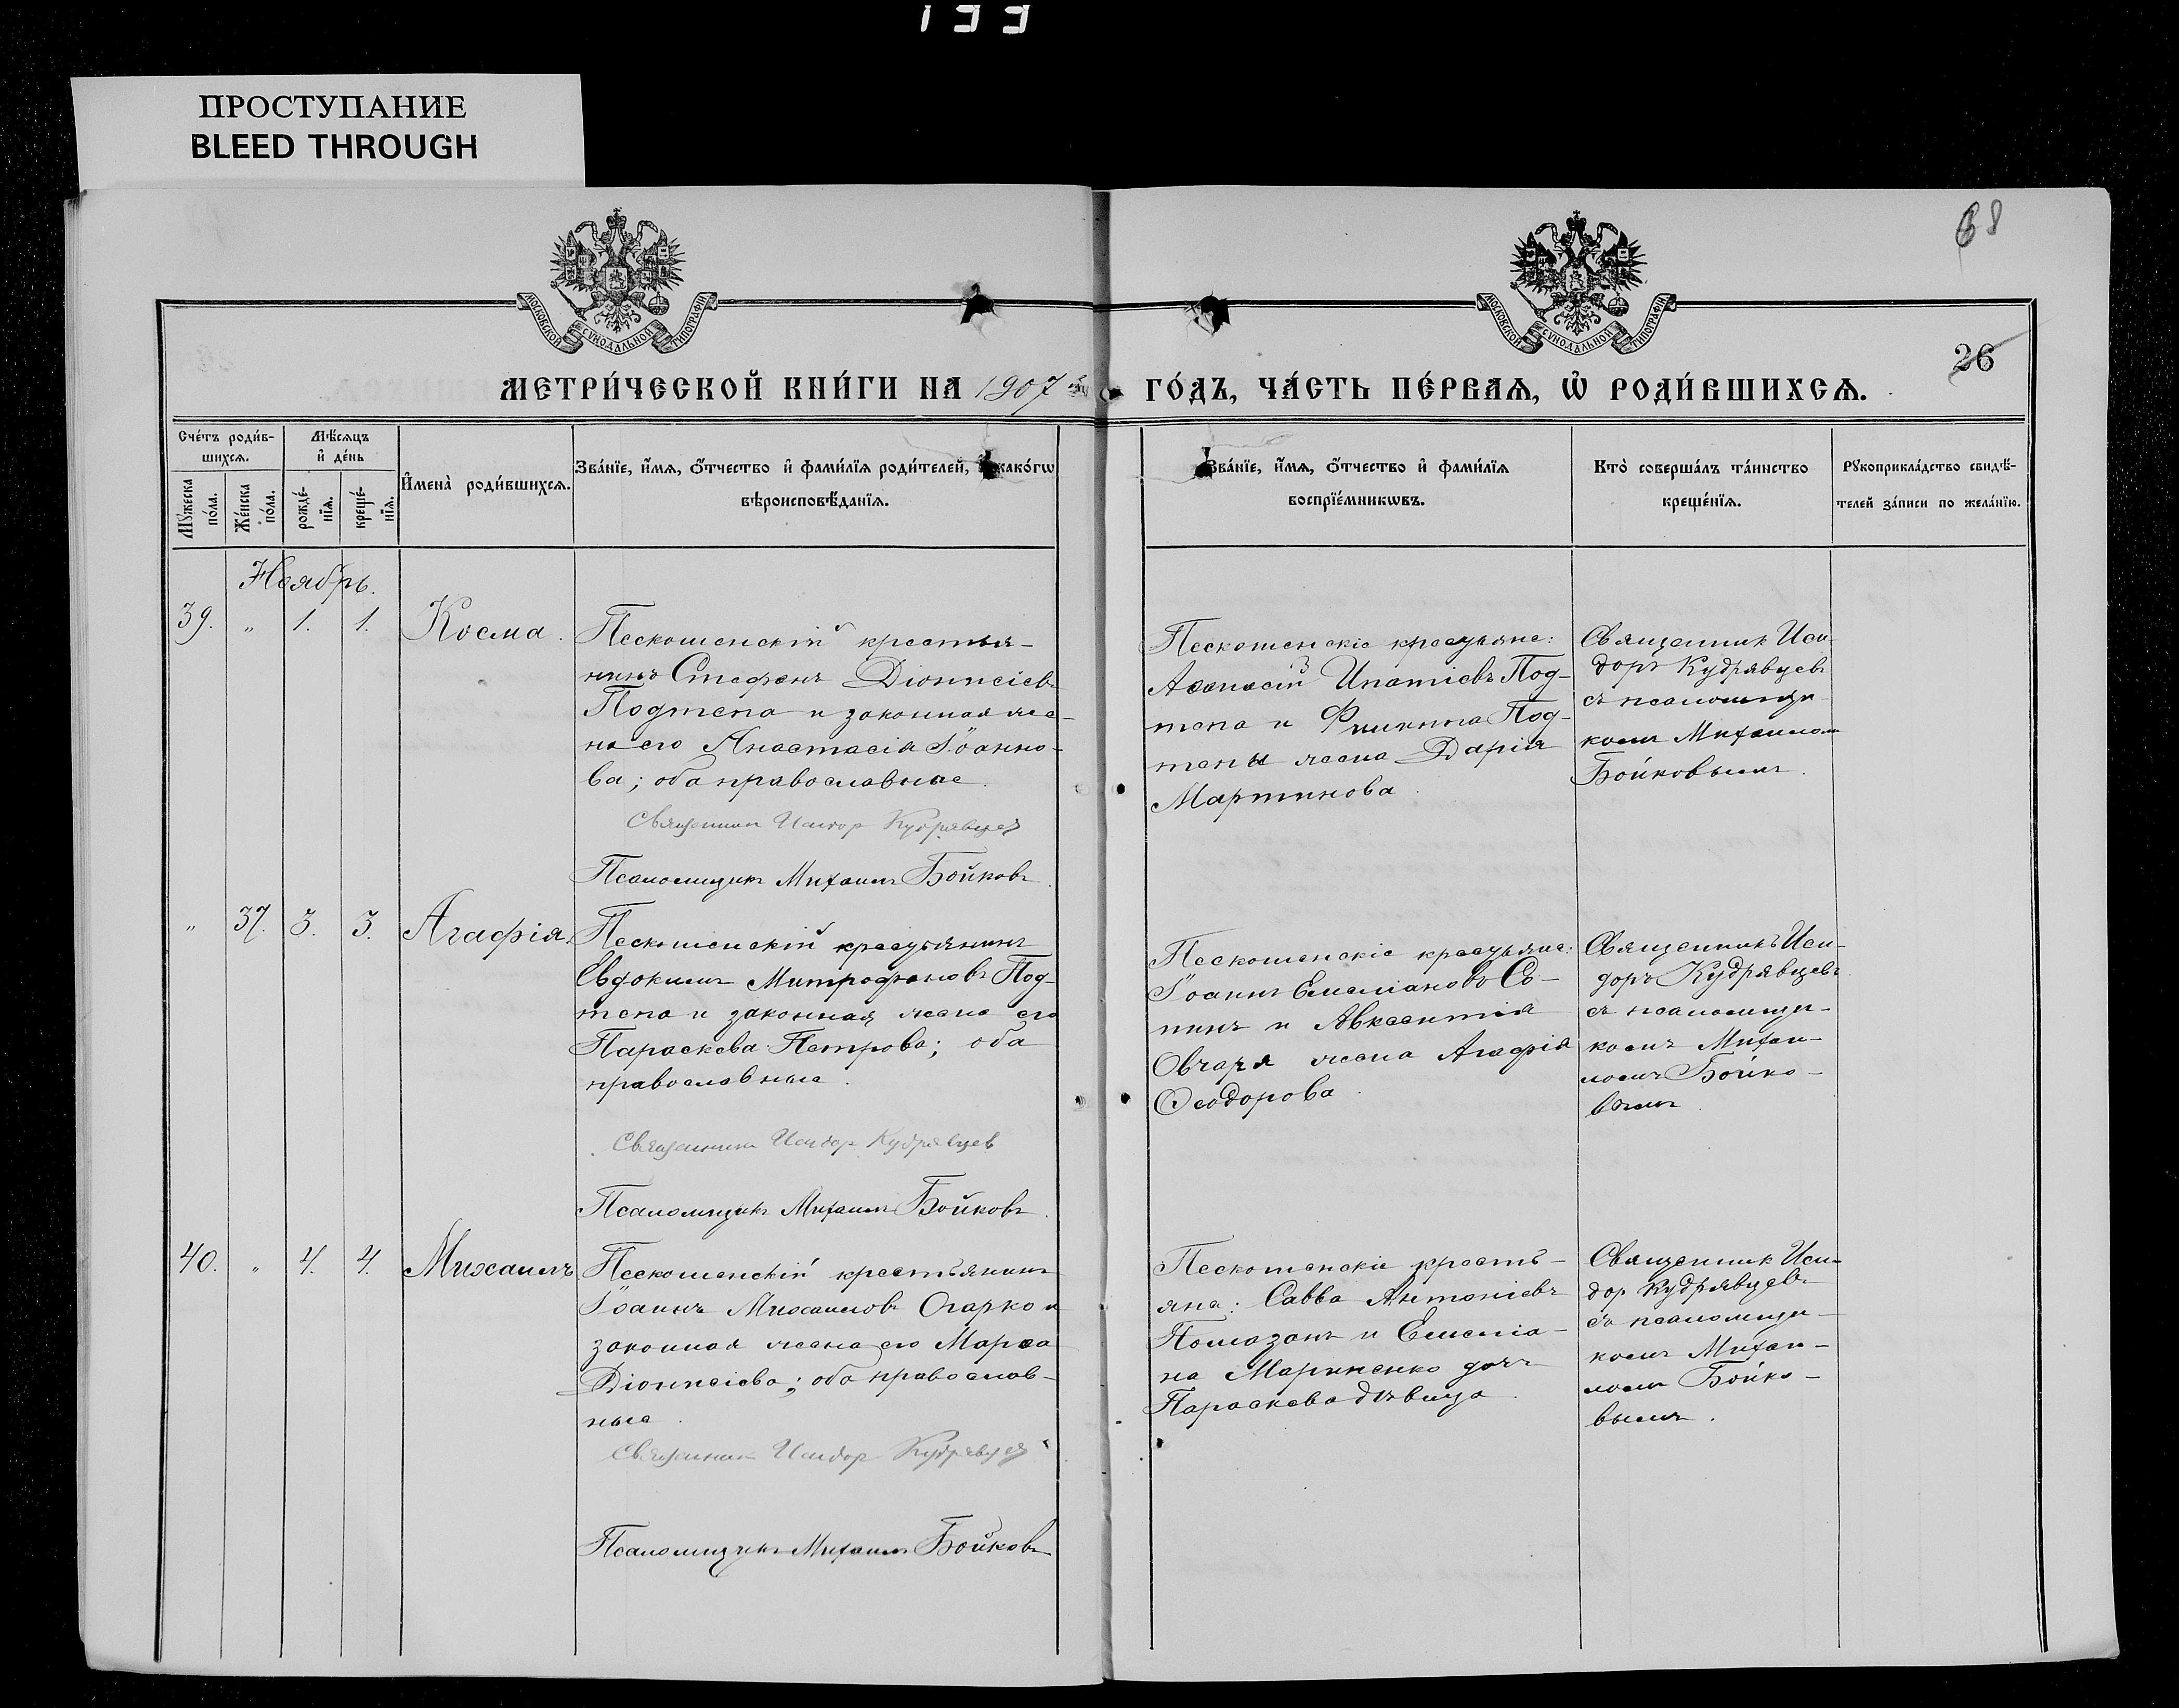 133
ПРОСТУПАНИЕ
BLEED THROUGH
68
МОСКОВСКОЙ СѴНОДАЛЬНОЙ ТИПОГРАФІИ
МОСКОВСКОЙ СѴНОДАЛЬНОЙ ТИПОГРАФІИ
26
МЕТРИ́ЧЕСКОЙ КНИ́ГИ НА 1907 ГО́ДЪ, ЧА́СТЬ ПЕ́РВАѦ, Ѡ҆ РОДИ́ВШИХСѦ.
Сче́тъ роди́в-
шихсѧ.
Мѣ́сѧцъ
и҆ де́нь
Мꙋ́жеска
по́ла.
Же́нска
по́ла.
рожде́-
нїѧ.
креще́-
нїѧ.
И҆мена̀ роди́вшихсѧ.
Зва́нїе, и҆́мѧ, ѻ҆́тчество и҆ фами́лїѧ роди́телей, и҆ како́гѡ
вѣроисповѣ́данїѧ.
Зва́нїе, и҆́мѧ, ѻ҆́тчество и҆ фами́лїѧ
воспрїе́мникѡвъ.
Кто̀ соверша́лъ та́инство
креще́нїѧ.
Рꙋкоприкла́дство свидѣ́-
телей за́писи по жела́нїю.
Ноябрь.
39. " 1. 1. Косма.
Пескошенскій крестья-
нинъ Стефанъ Діонисіевъ
Подтепа и законная же-
на его Анастасія Іоанно-
ва; оба православные.
Священник Исидор Кудрявцев
Псаломщикъ Михаилъ Бойковъ.
Пескошенскіе крестьяне:
Аѳанасій Ипатіевъ Под-
тепа и Филиппа Под-
тепы жена Дарія
Мартинова.
Священник Иси-
доръ Кудрявцевъ
съ псаломщи-
комъ Михаиломъ
Бойковымъ.
" 37. 3. 3. Агафія.
Пескошенскій крестьянинъ
Евдокимъ Митрофановъ Под-
тепа и законная жена его
Параскева Петрова; оба
православные.
Священник Исидор Кудрявцев
Псаломщикъ Михаилъ Бойковъ.
Пескошенскіе крестьяне:
Іоаннъ Емеліановъ Со-
пинъ и Авксентія
Овчаря жена Агафія
Ѳеодорова.
Священникъ Иси-
доръ Кудрявцевъ
съ псаломщи-
комъ Михаи-
ломъ Бойко-
вымъ.
40. " 4. 4. Михаилъ
Пескошенскій крестьянинъ
Іоаннъ Михаиловъ Огарко и
законная жена его Марѳа
Діонисіева; оба православ-
ные.
Священник Исидор Кудрявцев
Псаломщикъ Михаилъ Бойковъ
Пескошенскіе кресть-
яне: Савва Антоніевъ
Помазанъ и Емеліа-
на Мариненко дочь
Параскева дѣвица.
Священник Иси-
дор Кудрявцевъ
съ псаломщи-
комъ Михаи-
ломъ Бойко-
вымъ.